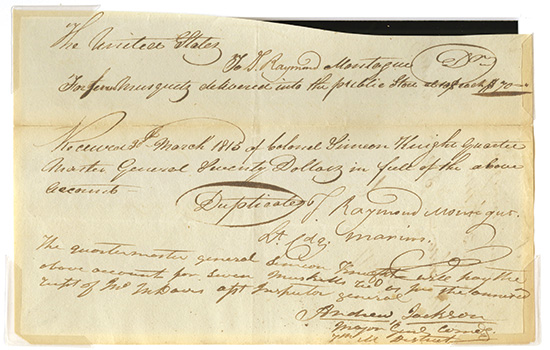 The United States
To J. Raymond Montague Dr
For seven Musquets delivered into the public Store at 10$ each $70
Received March 1815 of Colonel Simeon Knight Quarter
Master General Seventy Dollars in full of the above
account
Duplicate J. Raymond Montague
Lt Cdg. Marines
The quartermaster general Simeon Knight will pay the
above account for seven muskets as per the annexed
receipt of asst Inspector general
Andrew Jackson
Major Genl Comdg
7th M District